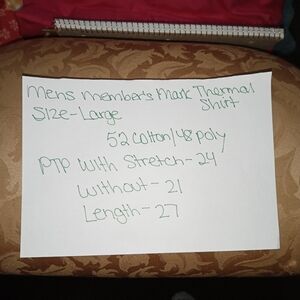 Mens Member's Mark Thermal
Size - Large Shirt
52 Cotton/48 poly
PTP With Stretch - 24
Without - 21
Length - 27